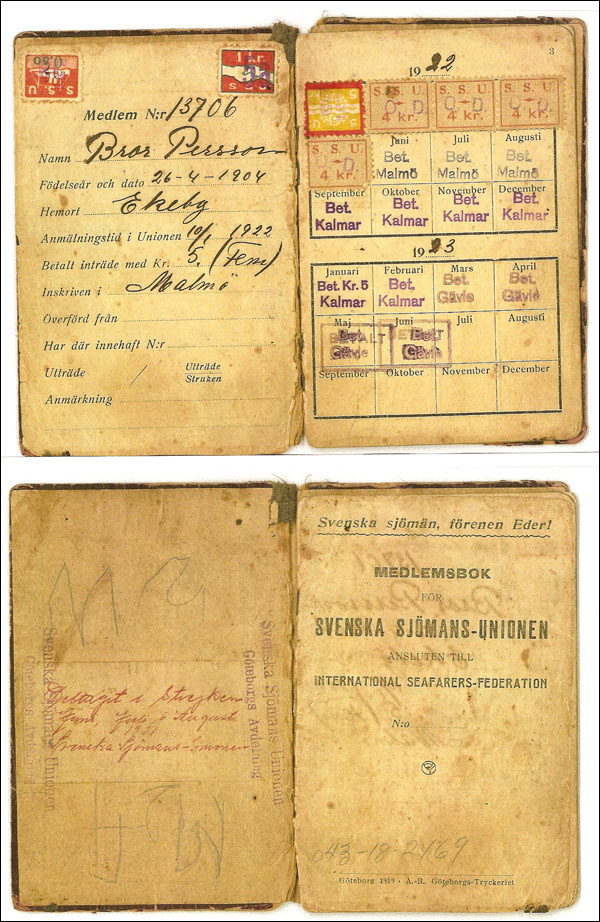 Medlem N:r 13706
Namn Bror Persson
Födelseår och dato 26-4-1904
Hemort Ekeby
Anmälningstid i Unionen 10/1 1922
Betalt inträde med Kr. 5. (Fem)
Inskriven i Malmö
Överförd från
Har där innehaft N:r
Utträde / Utträde
Struken
Anmärkning
1 kr.
S S U
3
1922
S. S. U. S. S. U. S. S. U.
O-D. O-D. O-D.
4 kr. 4 kr. 4 kr.
S. S. U.
O-D.
4 kr.
Juni Juli Augusti
Bet. Bet. Bet.
Malmö Malmö Malmö
September Oktober November December
Bet. Bet. Bet. Bet.
Kalmar Kalmar Kalmar Kalmar
1923
Januari Februari Mars April
Bet. Kr. 5 Bet. Bet. Bet.
Kalmar Kalmar Gävle Gävle
Maj Juni Juli Augusti
BETALT BETALT
Bet. Bet.
Gävle Gävle
September Oktober November December
Svenska Sjömans Unionen
Göteborgs Avdelning
Svenska Sjömans Unionen
Göteborgs Avdelning
i Strejken
Juli o Augusti
Svenska Sjömans-Unionen
Svenska sjömän, förenen Eder!
MEDLEMSBOK
FÖR
SVENSKA SJÖMANS-UNIONEN
ANSLUTEN TILL
INTERNATIONAL SEAFARERS-FEDERATION
N:o
043-18-2469
Göteborg 1919 - A.-B. Göteborgs-Tryckeriet